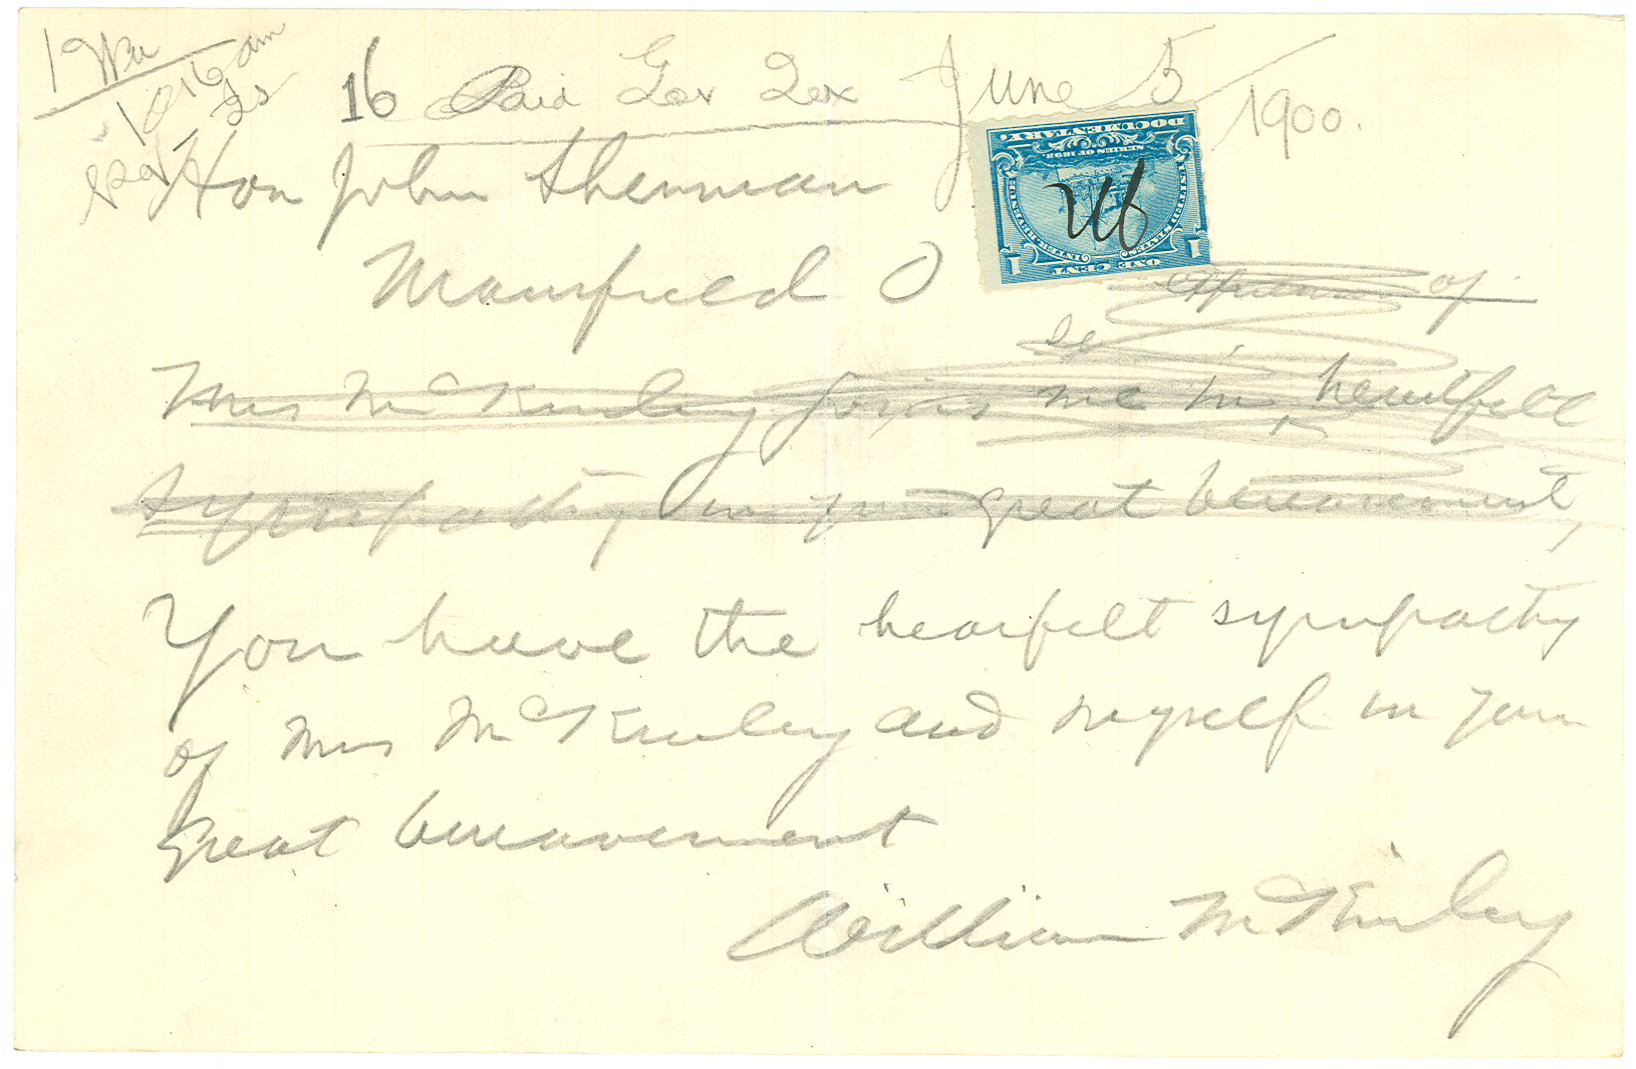 16 Paid Gov June 5 1900.
10 16 am
Hon John Sherman
Mansfield O
of
Mrs McKinley joins me in heartfelt
sympathy in your great bereavement,
You have the hearfelt sympathy
of Mrs McKinley and myself in your
great bereavement
William McKinley
DOCUMENTARY.
SERIES OF 1898
UNITED STATES INTER. REVENUE
1 ONE CENT 1